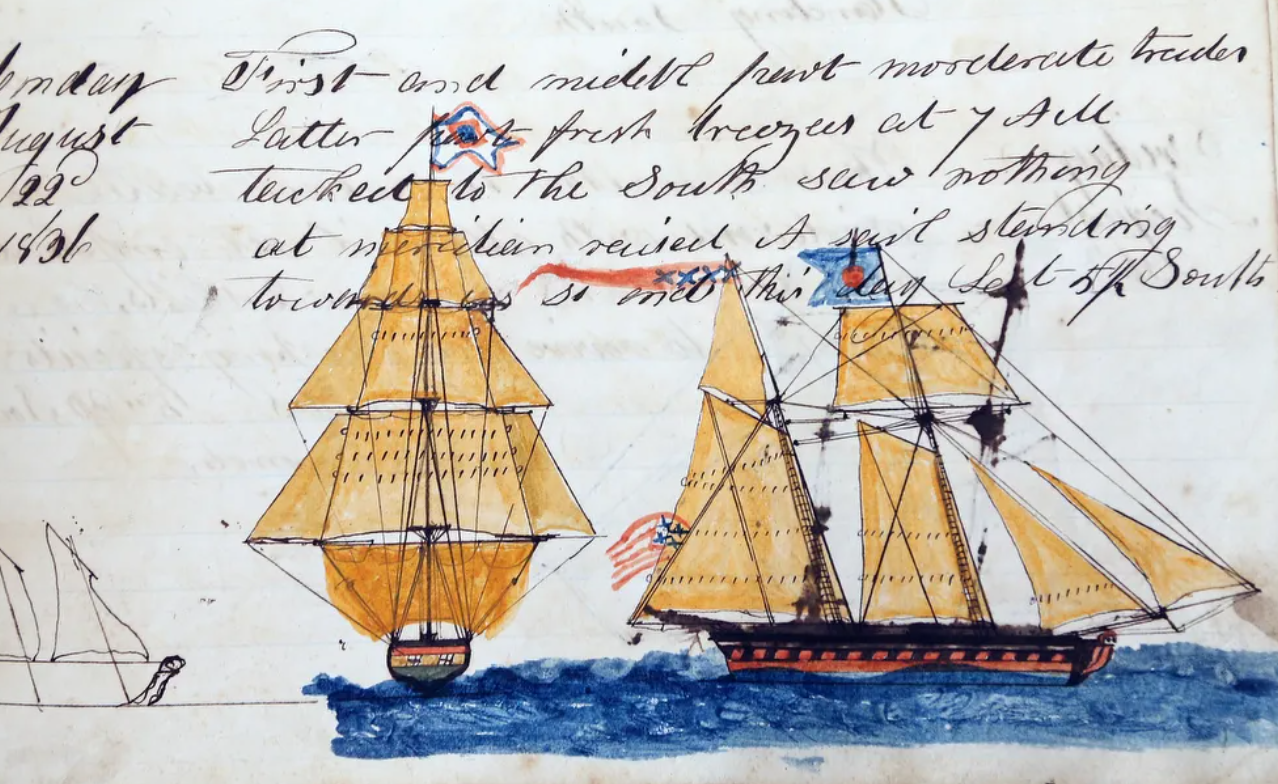 First and middl part morderate trades
August Latter part fresh breezes at 7 AM
22 tacked to the South saw nothing
1836 at meridian raised A sail standing
towards us so ends this day Lat South